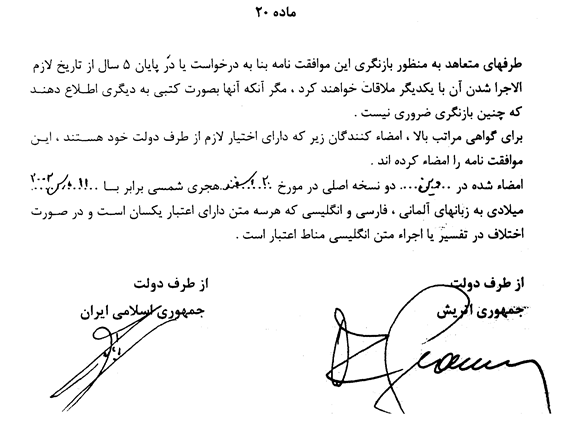 ماده ۲۰
طرفهای متعاهد به منظور بازنگری این موافقت نامه بنا به درخواست یا در پایان ۵ سال از تاریخ لازم
الاجرا شدن آن با یکدیگر ملاقات خواهند کرد ، مگر آنکه آنها بصورت کتبی به دیگری اطلاع دهند
که چنین بازنگری ضروری نیست .
برای گواهی مراتب بالا ، امضاء کنندگان زیر که دارای اختیار لازم از طرف دولت خود هستند ، این
موافقت نامه را امضاء کرده اند .
امضاء شده در ... وین ... دو نسخه اصلی در مورخ ۲۰ اسفند هجری شمسی برابر با ۱۱ مارس ۲۰۰۲
میلادی به زبانهای آلمانی ، فارسی و انگلیسی که هرسه متن دارای اعتبار یکسان است و در صورت
اختلاف در تفسیر یا اجراء متن انگلیسی مناط اعتبار است .
از طرف دولت
جمهوری اتریش
از طرف دولت
جمهوری اسلامی ایران